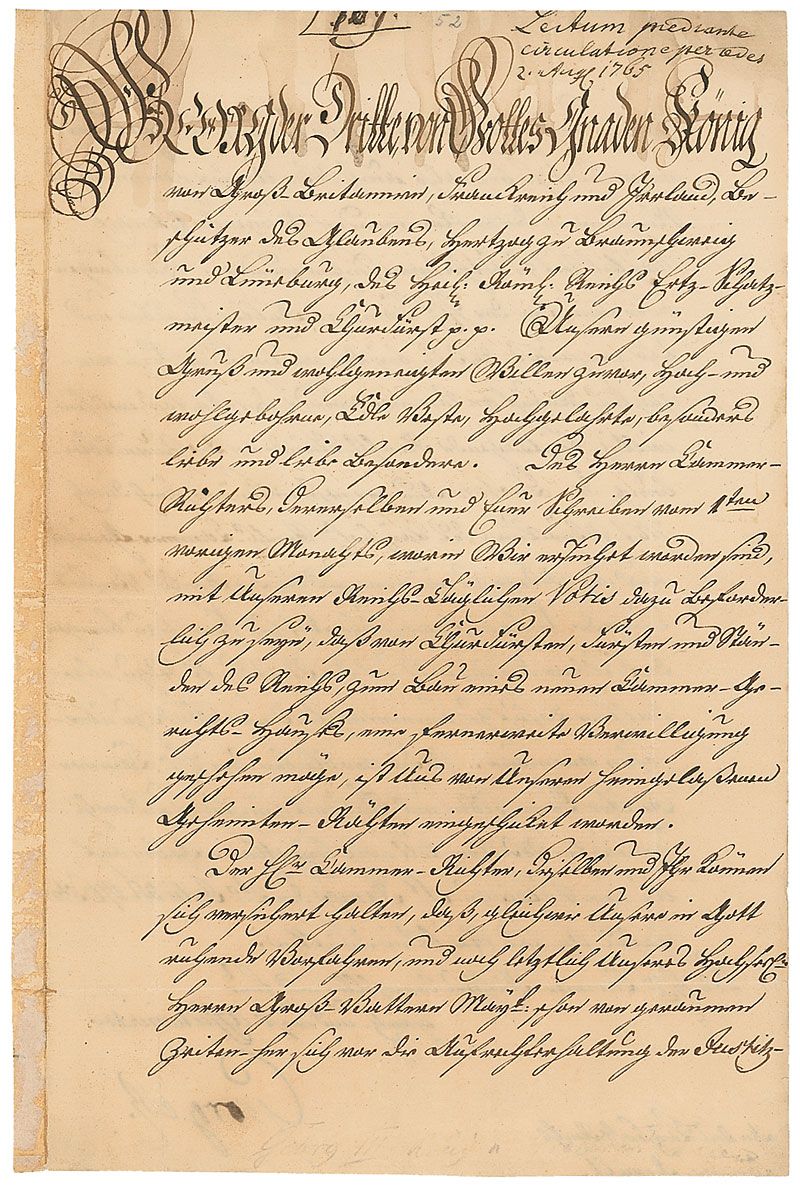 52
Lectum mediante
circulatione per aedes
2. Aug. 1765
George der Dritte, von Gottes Gnaden König
von Groß-Britannien, Franckreich und Irrland, Be-
schützer des Glaubens, Hertzog zu Braunschweig
und Lüneburg, des Heil: Röm: Reichs Ertz-Schatz-
meister und Churfürst p. p. Unsern günstigen
Gruß und wohlgeneigten Willen zuvor, Hoch- und
wohlgebohrne, Edle Veste, Hochgelahrte, besonders
liebe und liebe Besondere. Des Herrn Cammer-
Richters, derenselben und Euer Schreiben vom 1ten
vorigen Monahts, worin Wir ersuchet worden sind,
mit Unseren Reichs-Täglichen Votis dazu beforder-
lich zu seyn, daß von Churfürsten, Fürsten und Stän-
den des Reichs, zum Bau eines neuen Cammer-Ge-
richts-Hauses, eine fernerweite Verwilligung
geschehen möge, ist Uns von Unseren heimgelaßenen
Geheimten-Rähten eingeschicket worden.
Der Hr Cammer-Richter, dieselben und Ihr können
sich versichert halten, daß, gleichwie Unsere in Gott
ruhende Vorfahren, und noch letztlich Unseres Hochseel.
Herrn Groß-Vattern Mayt: schon von geraumen
Zeiten-her sich vor die Aufrechterhaltung der Justitz-